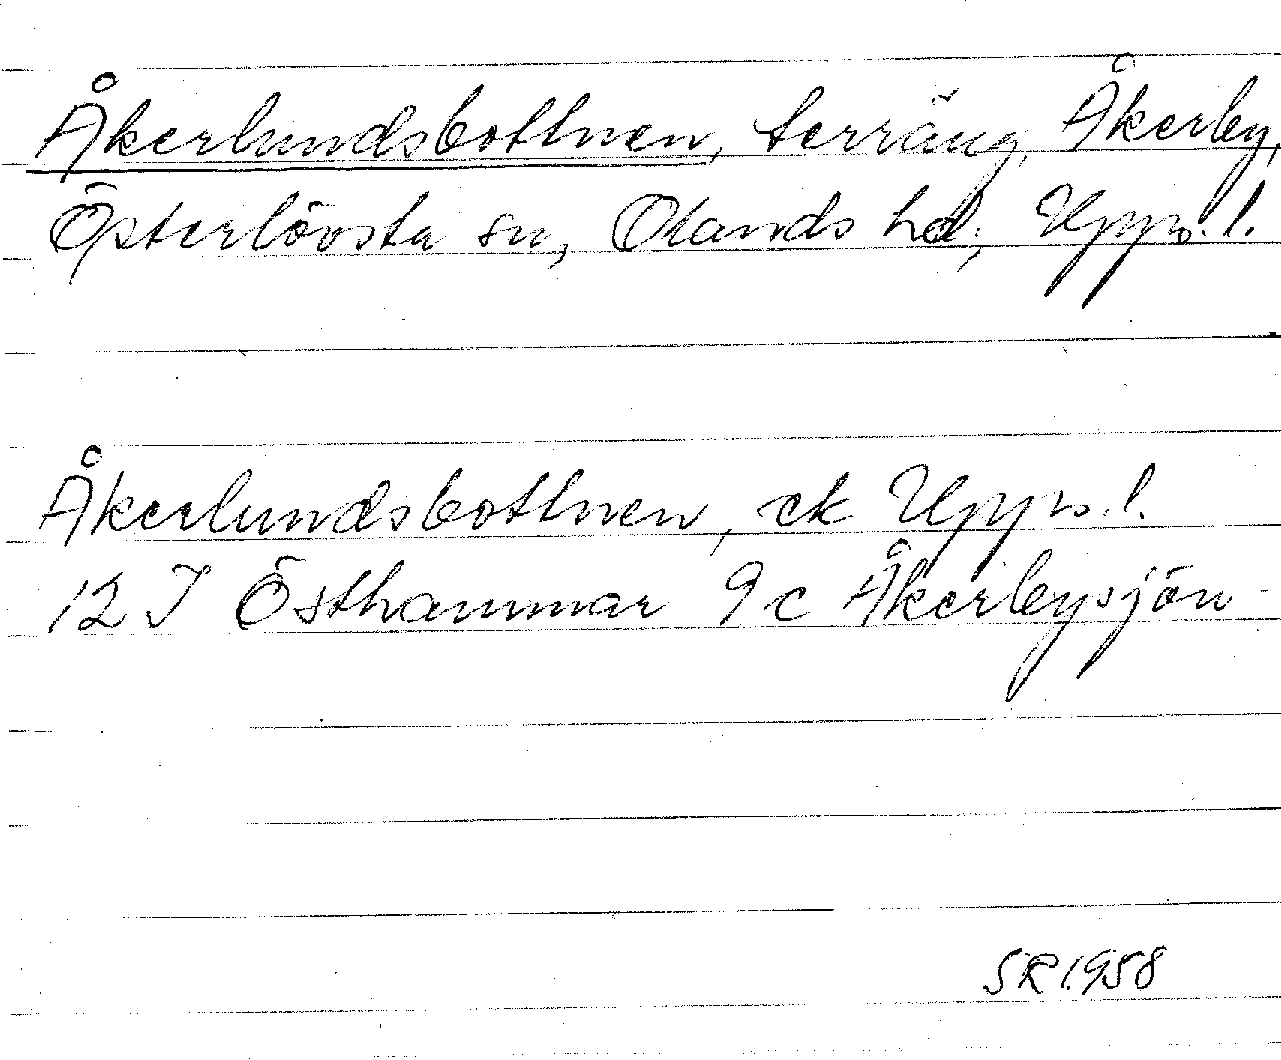 Åkerlundsbottnen, terräng, Åkerby,
Österlövsta sn, Olands hd, Upps. l.
Åkerlundsbottnen, ek Upps. l.
12 I Östhammar 9c Åkerbysjön
SR 1958